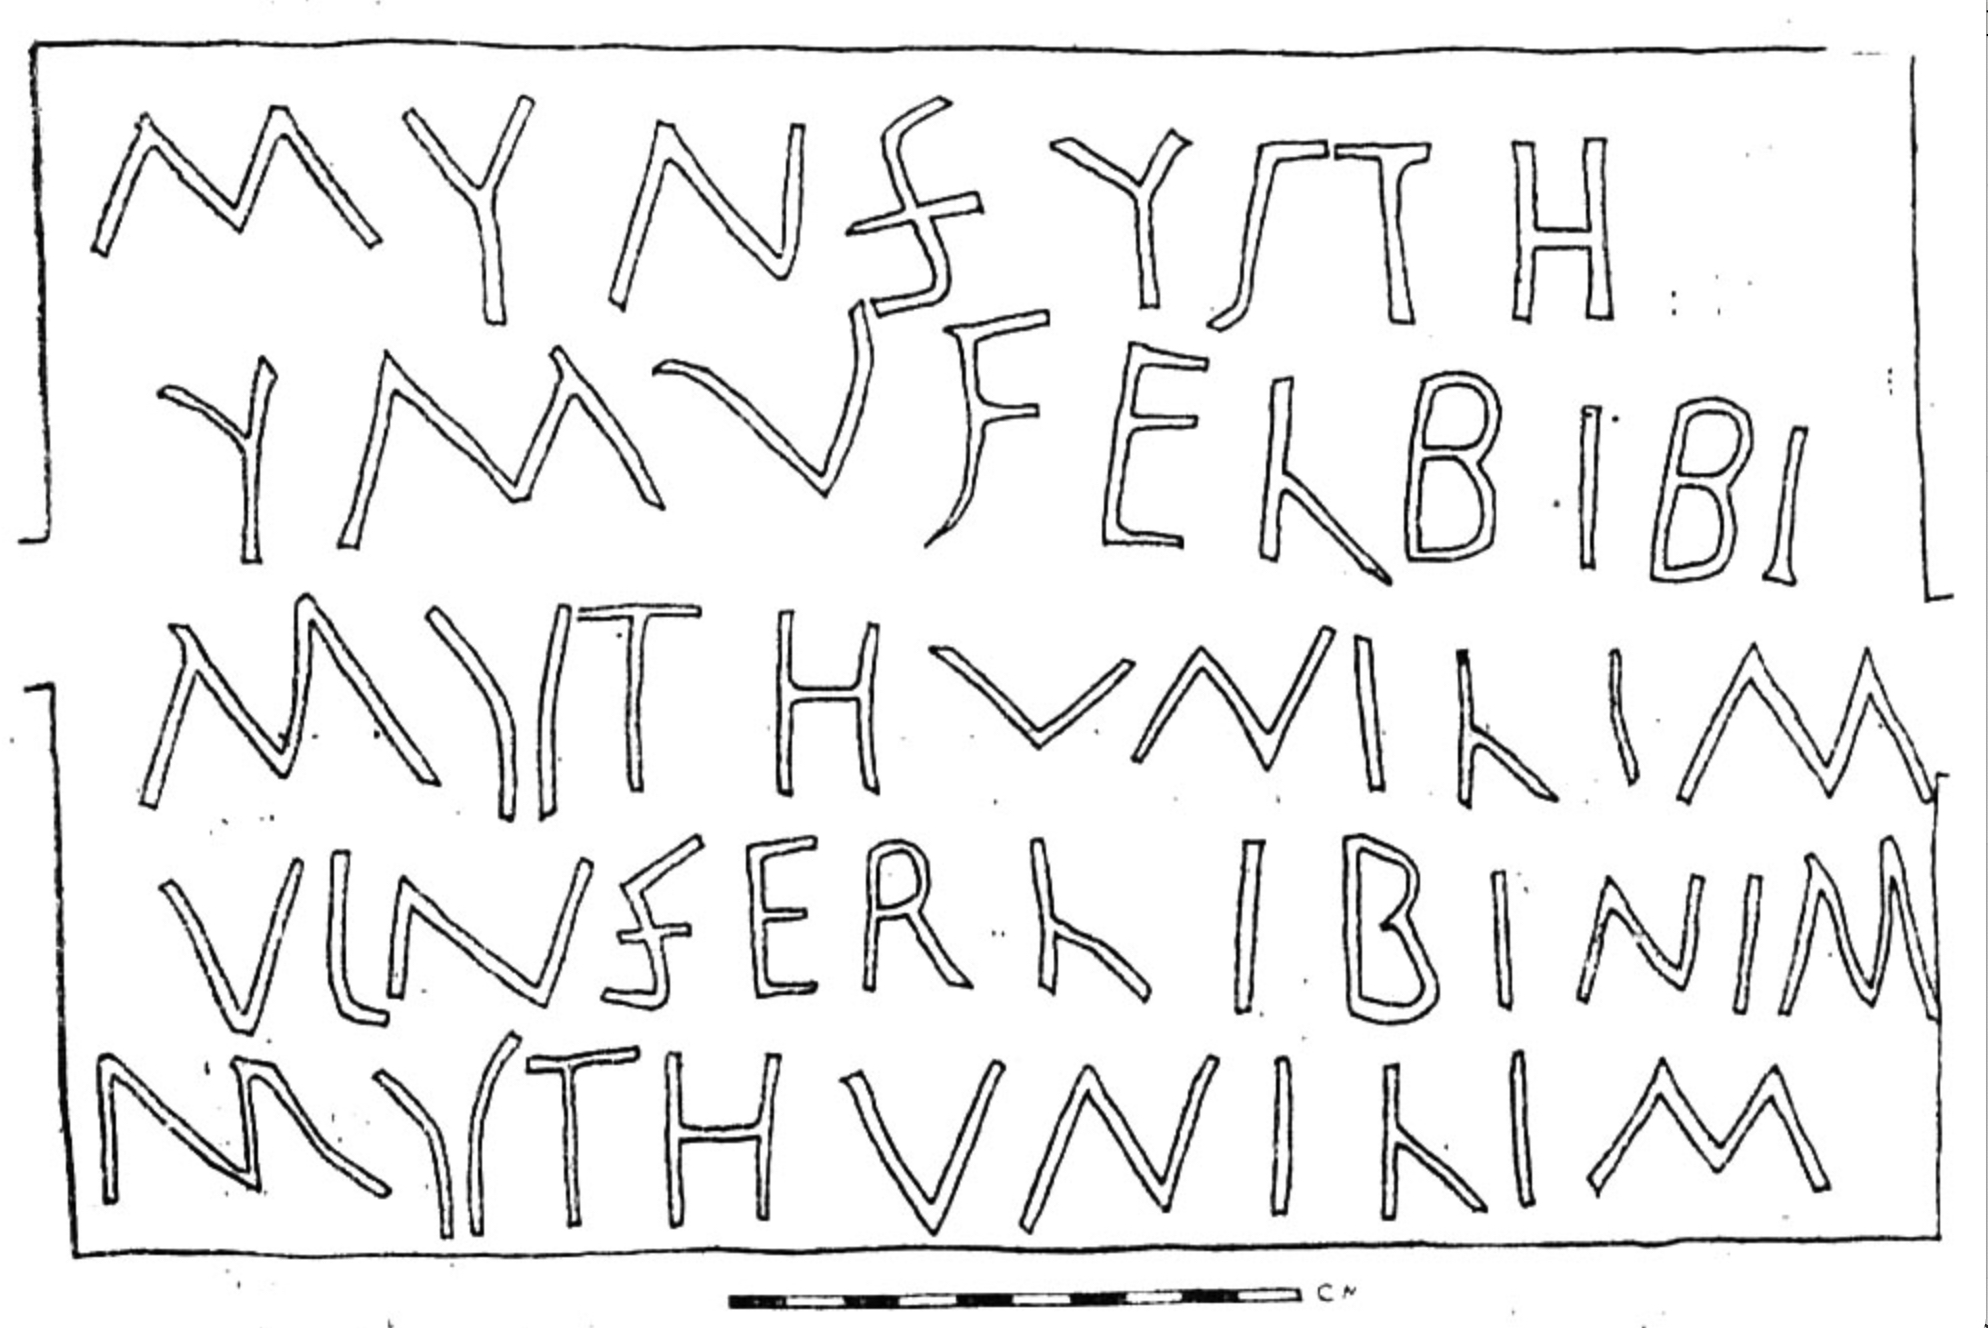 MYNꞨYSTH
YMVFELBIBI
MYTHVNILIM
VLNꞨERLIBINIM
MYTHVNILIM